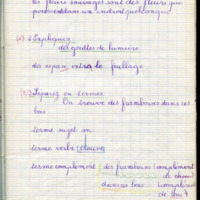 les fleurs sauvages sont des fleurs que
poussent dans un endroit quelconque
Expliquez
des gouttes de lumière
des repas
le feuillage
Séparez en termes
On trouve des framboises dans ces
bois
terme sujet on
terme verbe trouve
terme complément des framboises complément
de chose
dans ces bois complément
de lieu